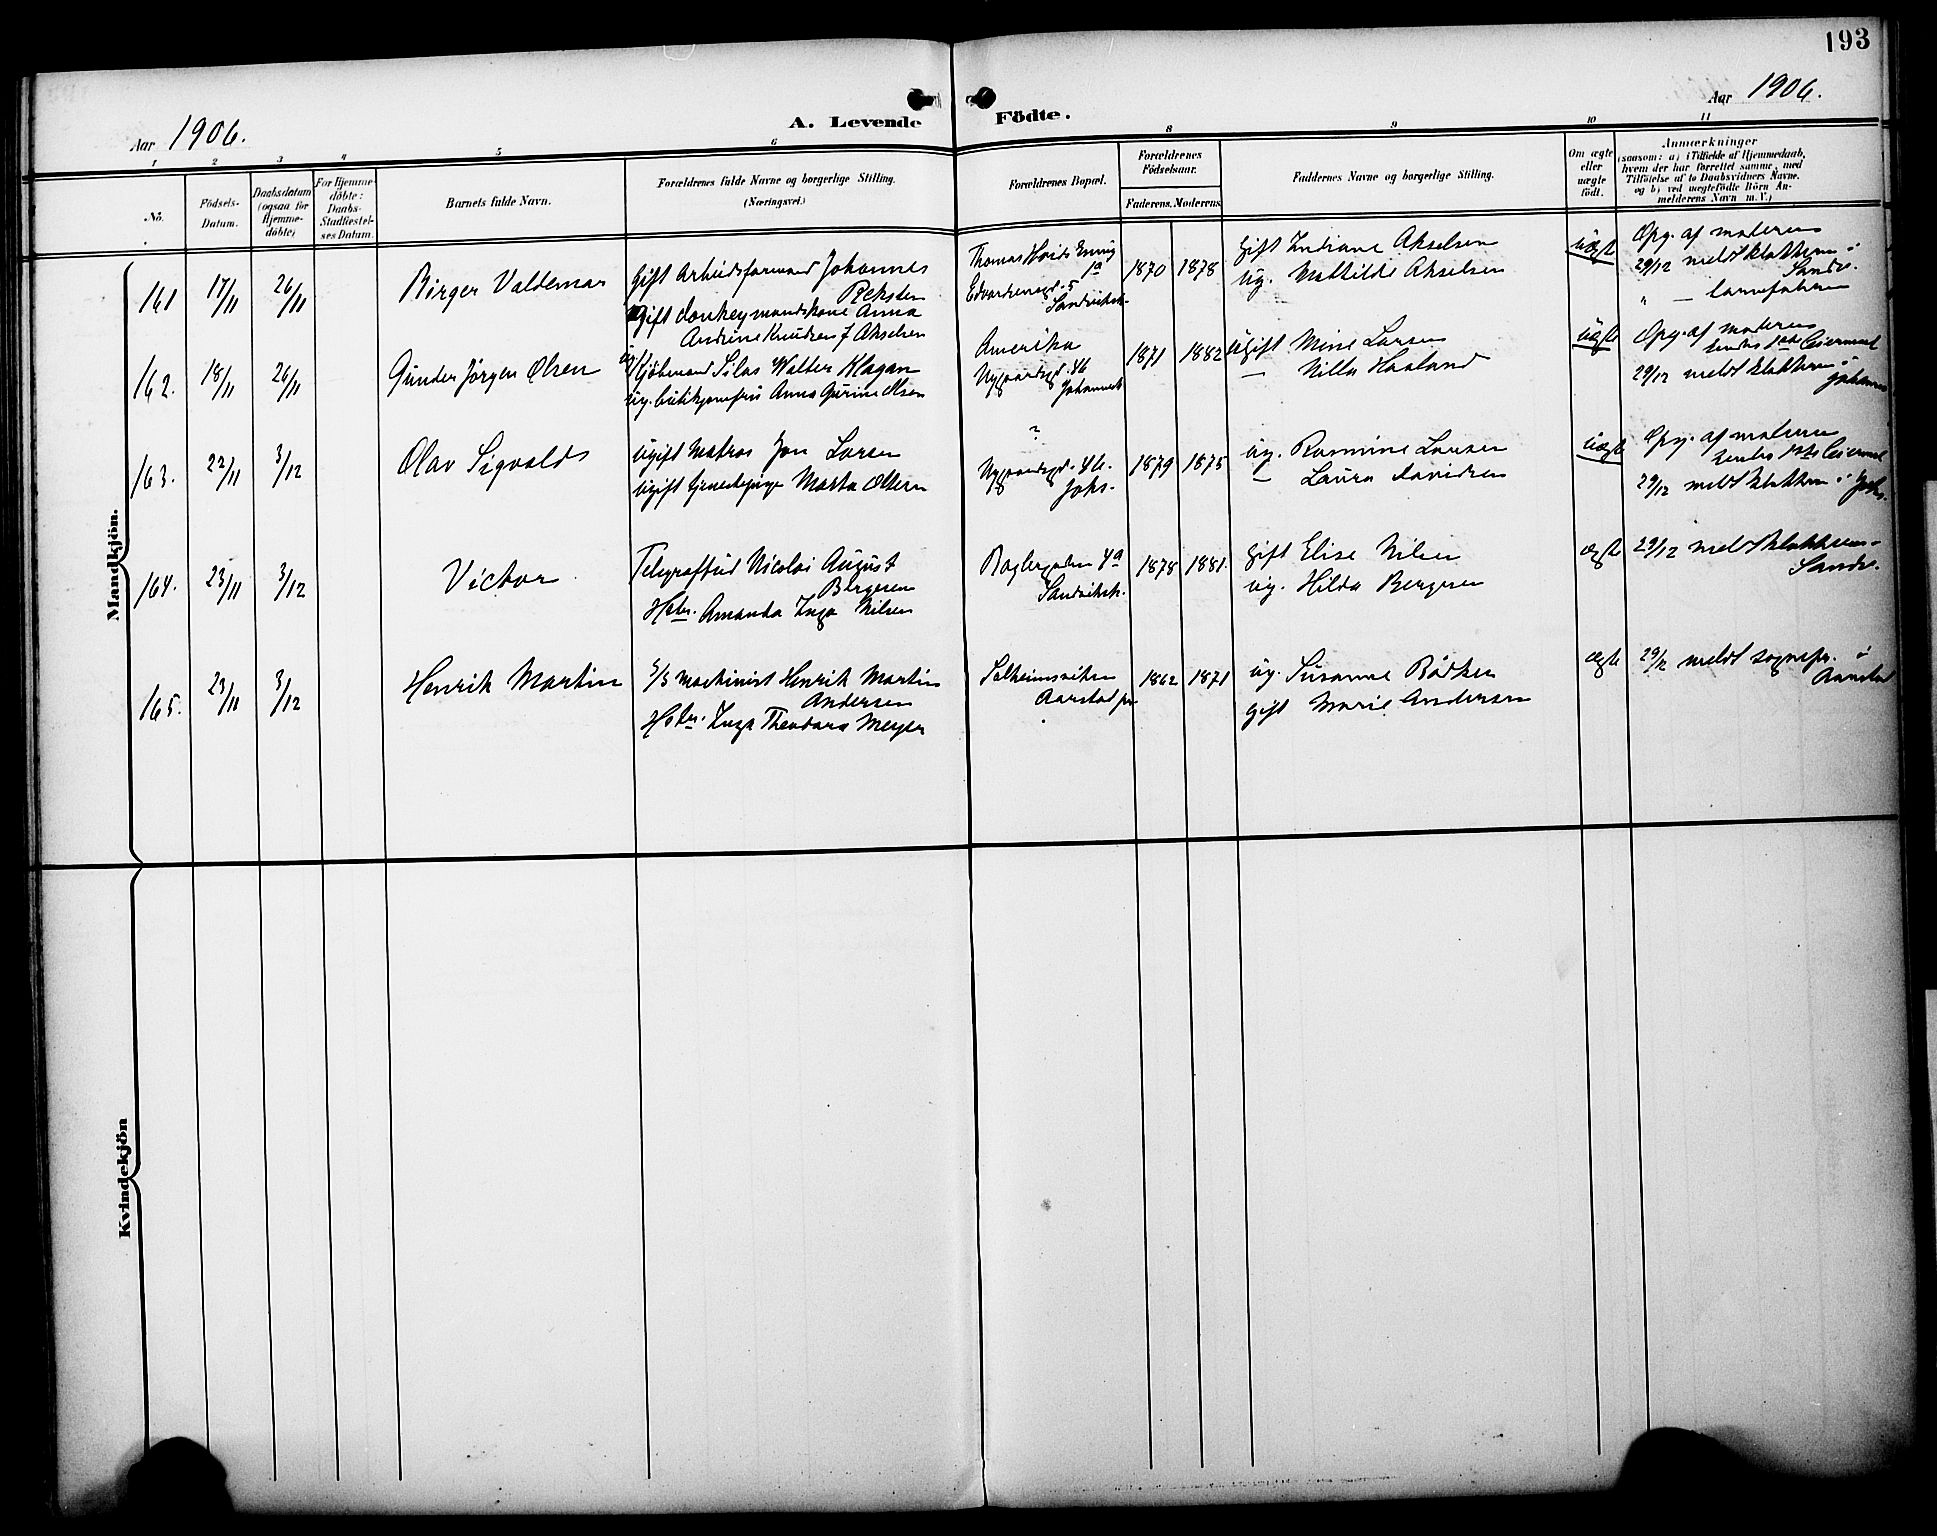 193
Aar 1906.
A. Levende Födte.
Aar 1906.
1 2 3 4 5 6 8 9 10 11
No.
Födsels-Datum.
Daabsdatum (ogsaa for Hjemme-döbte)
For Hjemme-döbte: Daabs-Stadfæstel-ses Datum.
Barnets fulde Navn.
Forældrenes fulde Navne og borgerlige Stilling.
(Næringsvei.)
Forældrenes Bopæl.
Forældrenes Födselsaar.
Faderens. Moderens.
Faddernes Navne og borgerlige Stilling.
Om ægte eller uægte födt.
Anmærkninger
(saasom: a) i Tilfælde af Hjemmedaab,
hvem der har forrettet samme, med
Tilföielse af to Daabsvidners Navne.
og b) ved uægtefödte Börn An-
melderens Navn m. V.)
Mandkjön.
161 17/11 26/11 Birger Valdemar
Gift Arbeidsformand Johannes
Reksten
Gift donkeymandskone Anna
Andrine Knudsen f Akselsen
1a
Edvardsensgd. 5
Sandviksk.
1870 1878
Gift Indiane Akselsen
ug. Mathilde Akselsen
uægte
Opg. af moderen
29/12 meldt klokkeren i
Sandv.
162. 18/11 26/11 Gunder Jörgen Olsen
ug. Kjöbmand Silas Walter Klagan
ug. butikjomfru Anna Gurine Olsen
Amerika
Nygaardsgd. 46
Johannesk
1871 1882
Ugift Mine Larsen
— Nilla Haaland
uægte
Opg. af moderen
hendes 1ste Leiermaal
29/12 meldt klokkeren i
Johannes
163. 22/11 3/12 Olav Sigvalds
Ugift Matros Jon Larsen
Ugift tjenestepige Marta Oltern
?
Nygaardsgd. 46.
Johs.
1879 1875
ug. Rasmine Larsen
— Laura Davidsen
uægte
Opg. af moderen
hendes 1ste Leiermaal
29/12 meldt klokkeren i Johs.
164. 23/11 3/12 Victor
Telegrafbud Nicolai August
Bergesen
Hstr. Amanda Inga Nilsen
Baglergaden 4a
Sandviksk.
1878 1881.
Gift Elise Nilsen
ug. Hilda Bergesen
ægte
29/12 meldt klokkeren i
Sandv.
165. 23/11 3/12 Henrik Martin
S/S Maskinist Henrik Martin
Andersen
Hstr. Inga Theodora Meyer
Solheimsviken
Aarstad pr.
1862 1871
ug. Susanne Bödker
gift Marie Andersen
ægte
29/12 meldt sognepr. i
Aarstad
Kvindekjön